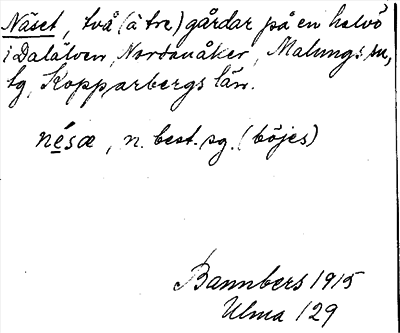 Näset, två (à tre) gårdar på en halvö
i Dalälven, Nordanåker, Malungs sn,
Kopparbergs län.
nésæ, n. best. sg. (böjes)
Bannbers 1915
Ulma 129